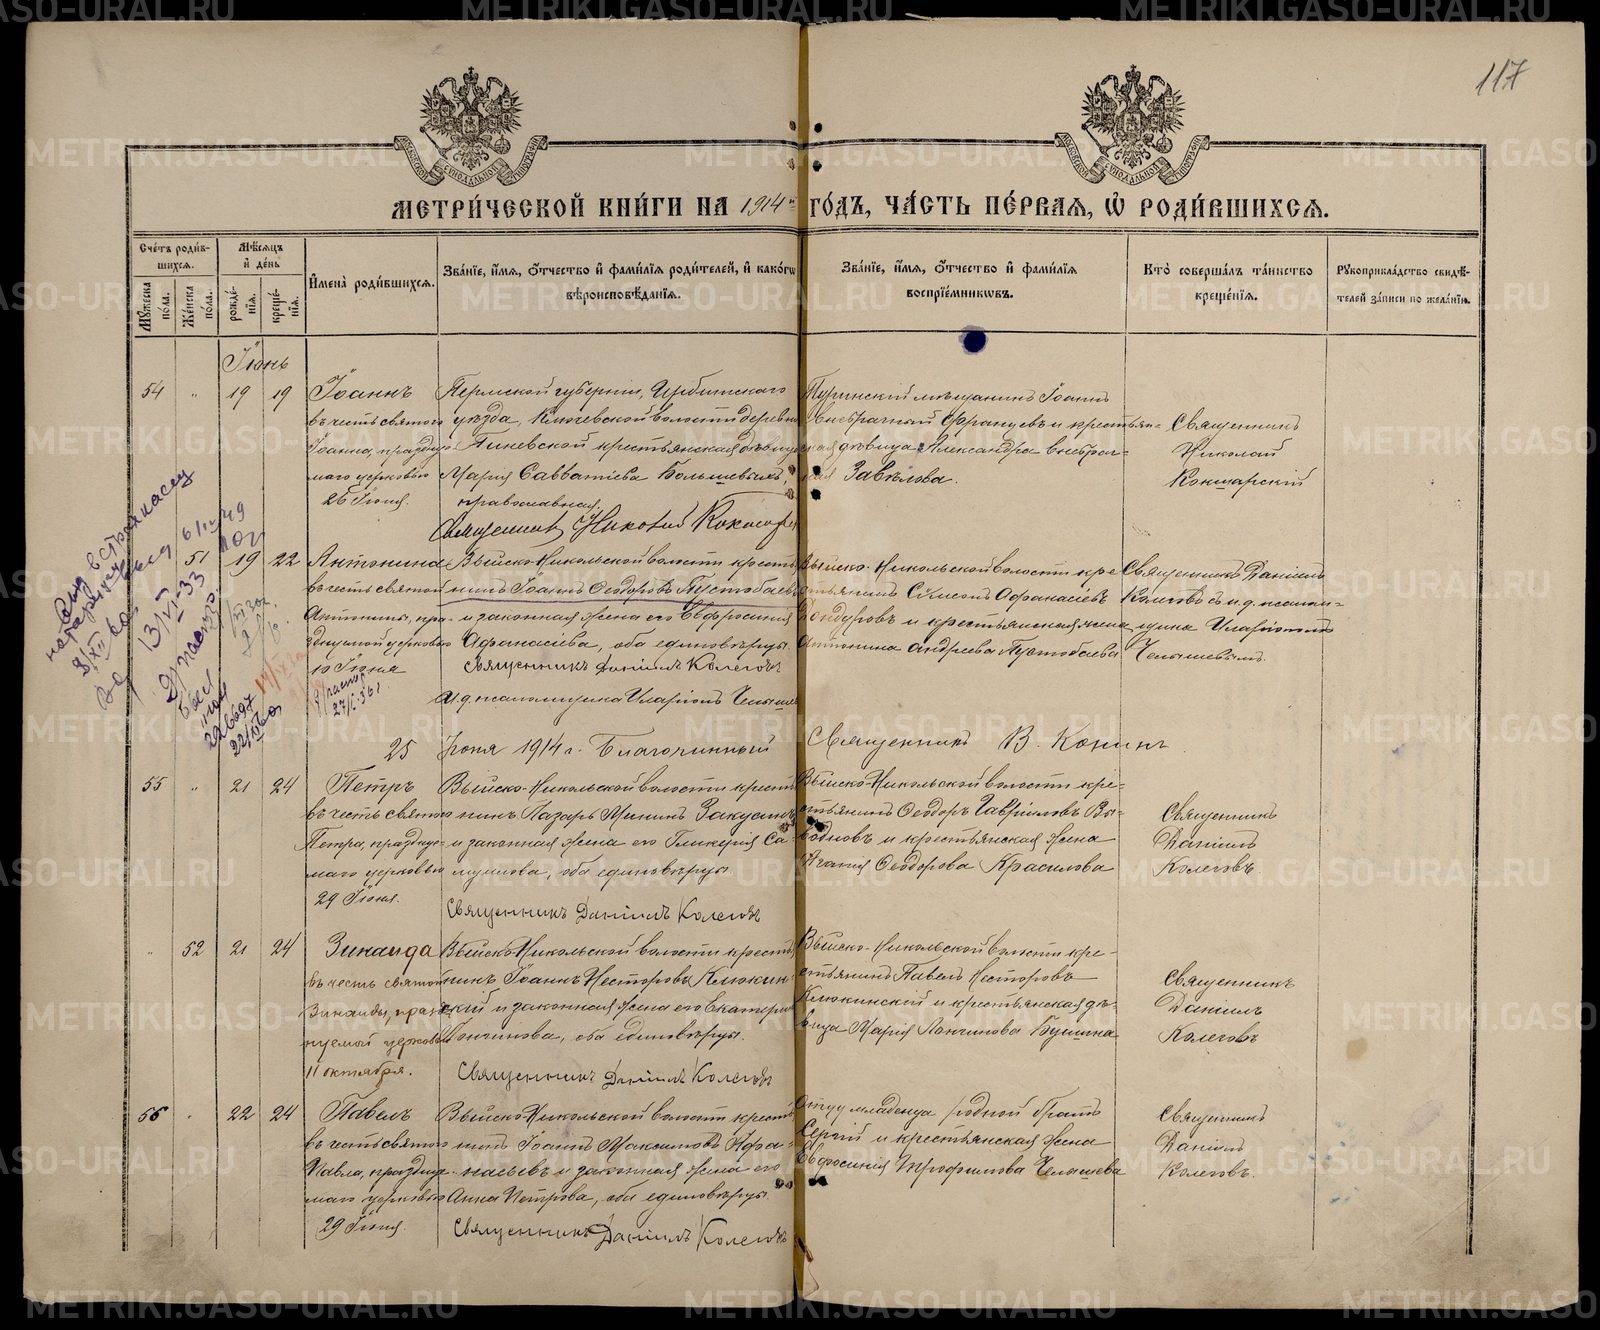 117
МЕТРИ́ЧЕСКОЙ КНИ́ГИ НА 1914 й ГО́ДЪ, ЧА́СТЬ ПЕ́РВАЯ, Ѡ РОДИ́ВШИХСЯ.
Сче́тъ роди́в-
шихся.
Мѣ́сяцъ
и де́нь
Мꙋ́жеска по́ла.
Же́нска по́ла.
рожде́-
нїя.
креще́-
нїя.
И҆мена̀ роди́вшихся.
Зва́нїе, и҆́мя, ѻ҆́тчество и҆ фами́лїя роди́телей, и҆ како́гѡ
вѣроисповѣ́данїя.
Зва́нїе, и҆́мя, ѻ҆́тчество и҆ фами́лїя
воспрїе́мникѡвъ.
Кто̀ соверша́лъ та́инство
креще́нїя.
Рꙋкоприкла́дство свидѣ́-
телей за́писи по жела́нїю.
Іюнь
54 " 19 19
Іоаннъ
въ честь святого
Іоанна, праздну-
маго церковью
26 Іюня.
Пермской губерніи, Ирбитскаго
уѣзда, Ключевской волости деревни
крестьянская дѣвица
Марія Савватіева Большевыхъ,
православная.
Священникъ Николай
Туринскій мѣщанинъ Іоаннъ
внебрачный Францевъ и крестьян-
ская дѣвица Александра внебрач-
ная Завѣлова.
Священникъ
Николай
Кокшарскій
51 19 22
Антонина
въ честь святой
Антонины, пра-
зднуемой церковью
10 Іюня
Выйско-Никольской волости кресть
нинъ Іоаннъ Ѳеодоровъ Пустобаевъ
и законная жена его Евфросинія
Афанасіева, оба единовѣрцы.
Священникъ Даніилъ Колеговъ
И.д. псаломщика Иларіонъ
Выйско-Никольской волости кре
стьянинъ Симеонъ Афанасіевъ
Кондуровъ и крестьянская жена
Антонина Андреева Пустобаева
Священникъ Даніилъ
Колеговъ съ и.д. псалом-
щика Иларіономъ
Челышевымъ.
25 Іюня 1914 г. Благочинный Священникъ В. Конинъ
55 " 21 24
Петръ
въ честь святого
Петра, праздну-
маго церковью
29 Іюня.
Выйско-Никольской волости кресть
нинъ Лазарь Мининъ Закусинъ
и законная жена его Гликерія Са-
муилова, оба единовѣрцы.
Священникъ Даніилъ Колеговъ
Выйско-Никольской волости кре-
стьянинъ Ѳеодоръ Гавріиловъ Вы-
водновъ и крестьянская жена
Агапія Ѳеодорова Красилова
Священникъ
Даніилъ
Колеговъ
" 52 21 24
Зинаида
въ честь святой
Зинаиды, празд-
нуемой церковью
11 октября.
Выйско-Никольской волости кресть
нинъ Іоаннъ Несторовъ Клюкин
ской и законная жена его Екатерин
Лонгинова, оба единовѣрцы.
Священникъ Даніилъ Колеговъ
Выйско-Никольской волости кре-
стьянинъ Павелъ Несторовъ
Клюкинской и крестьянская дѣ-
вица Марія Лонгинова Бушина
Священникъ
Даніилъ
Колеговъ
56 " 22 24
Павелъ
въ честь святого
Павла, праздну
маго церковью
29 Іюня.
Выйско-Никольской волости кресть
нинъ Іоаннъ Максимовъ Афа-
насьевъ и законная жена его
Анна Петрова, оба единовѣрцы.
Священникъ Даніилъ Колеговъ
Отцу младенца родной братъ
Сергій и крестьянская жена
Евфросинія Трофимова Челышева
Священникъ
Даніилъ
Колеговъ.
METRIKI.GASO-URAL.RU